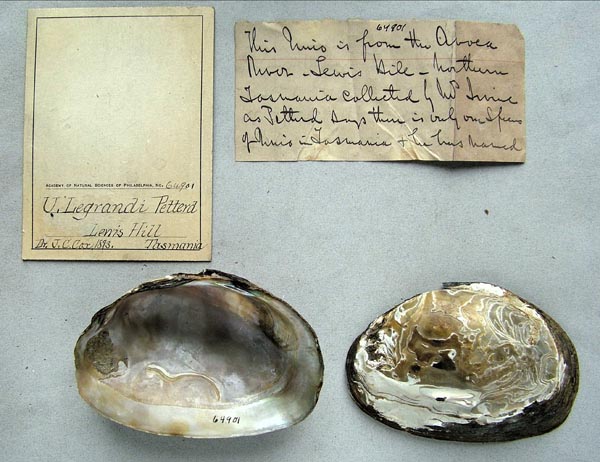 ACADEMY OF NATURAL SCIENCES OF PHILADELPHIA, NO. 64901
U. Legrandi Petterd
Lewis Hill
Dr. J. C. Cox, 1893. Tasmania
64901
This Unio is from the
River - Lewis Hile - Northern
Tasmania collected by Mr Irvine
as Petterd says there is only one Species
of Unio in Tasmania & he has named
64901